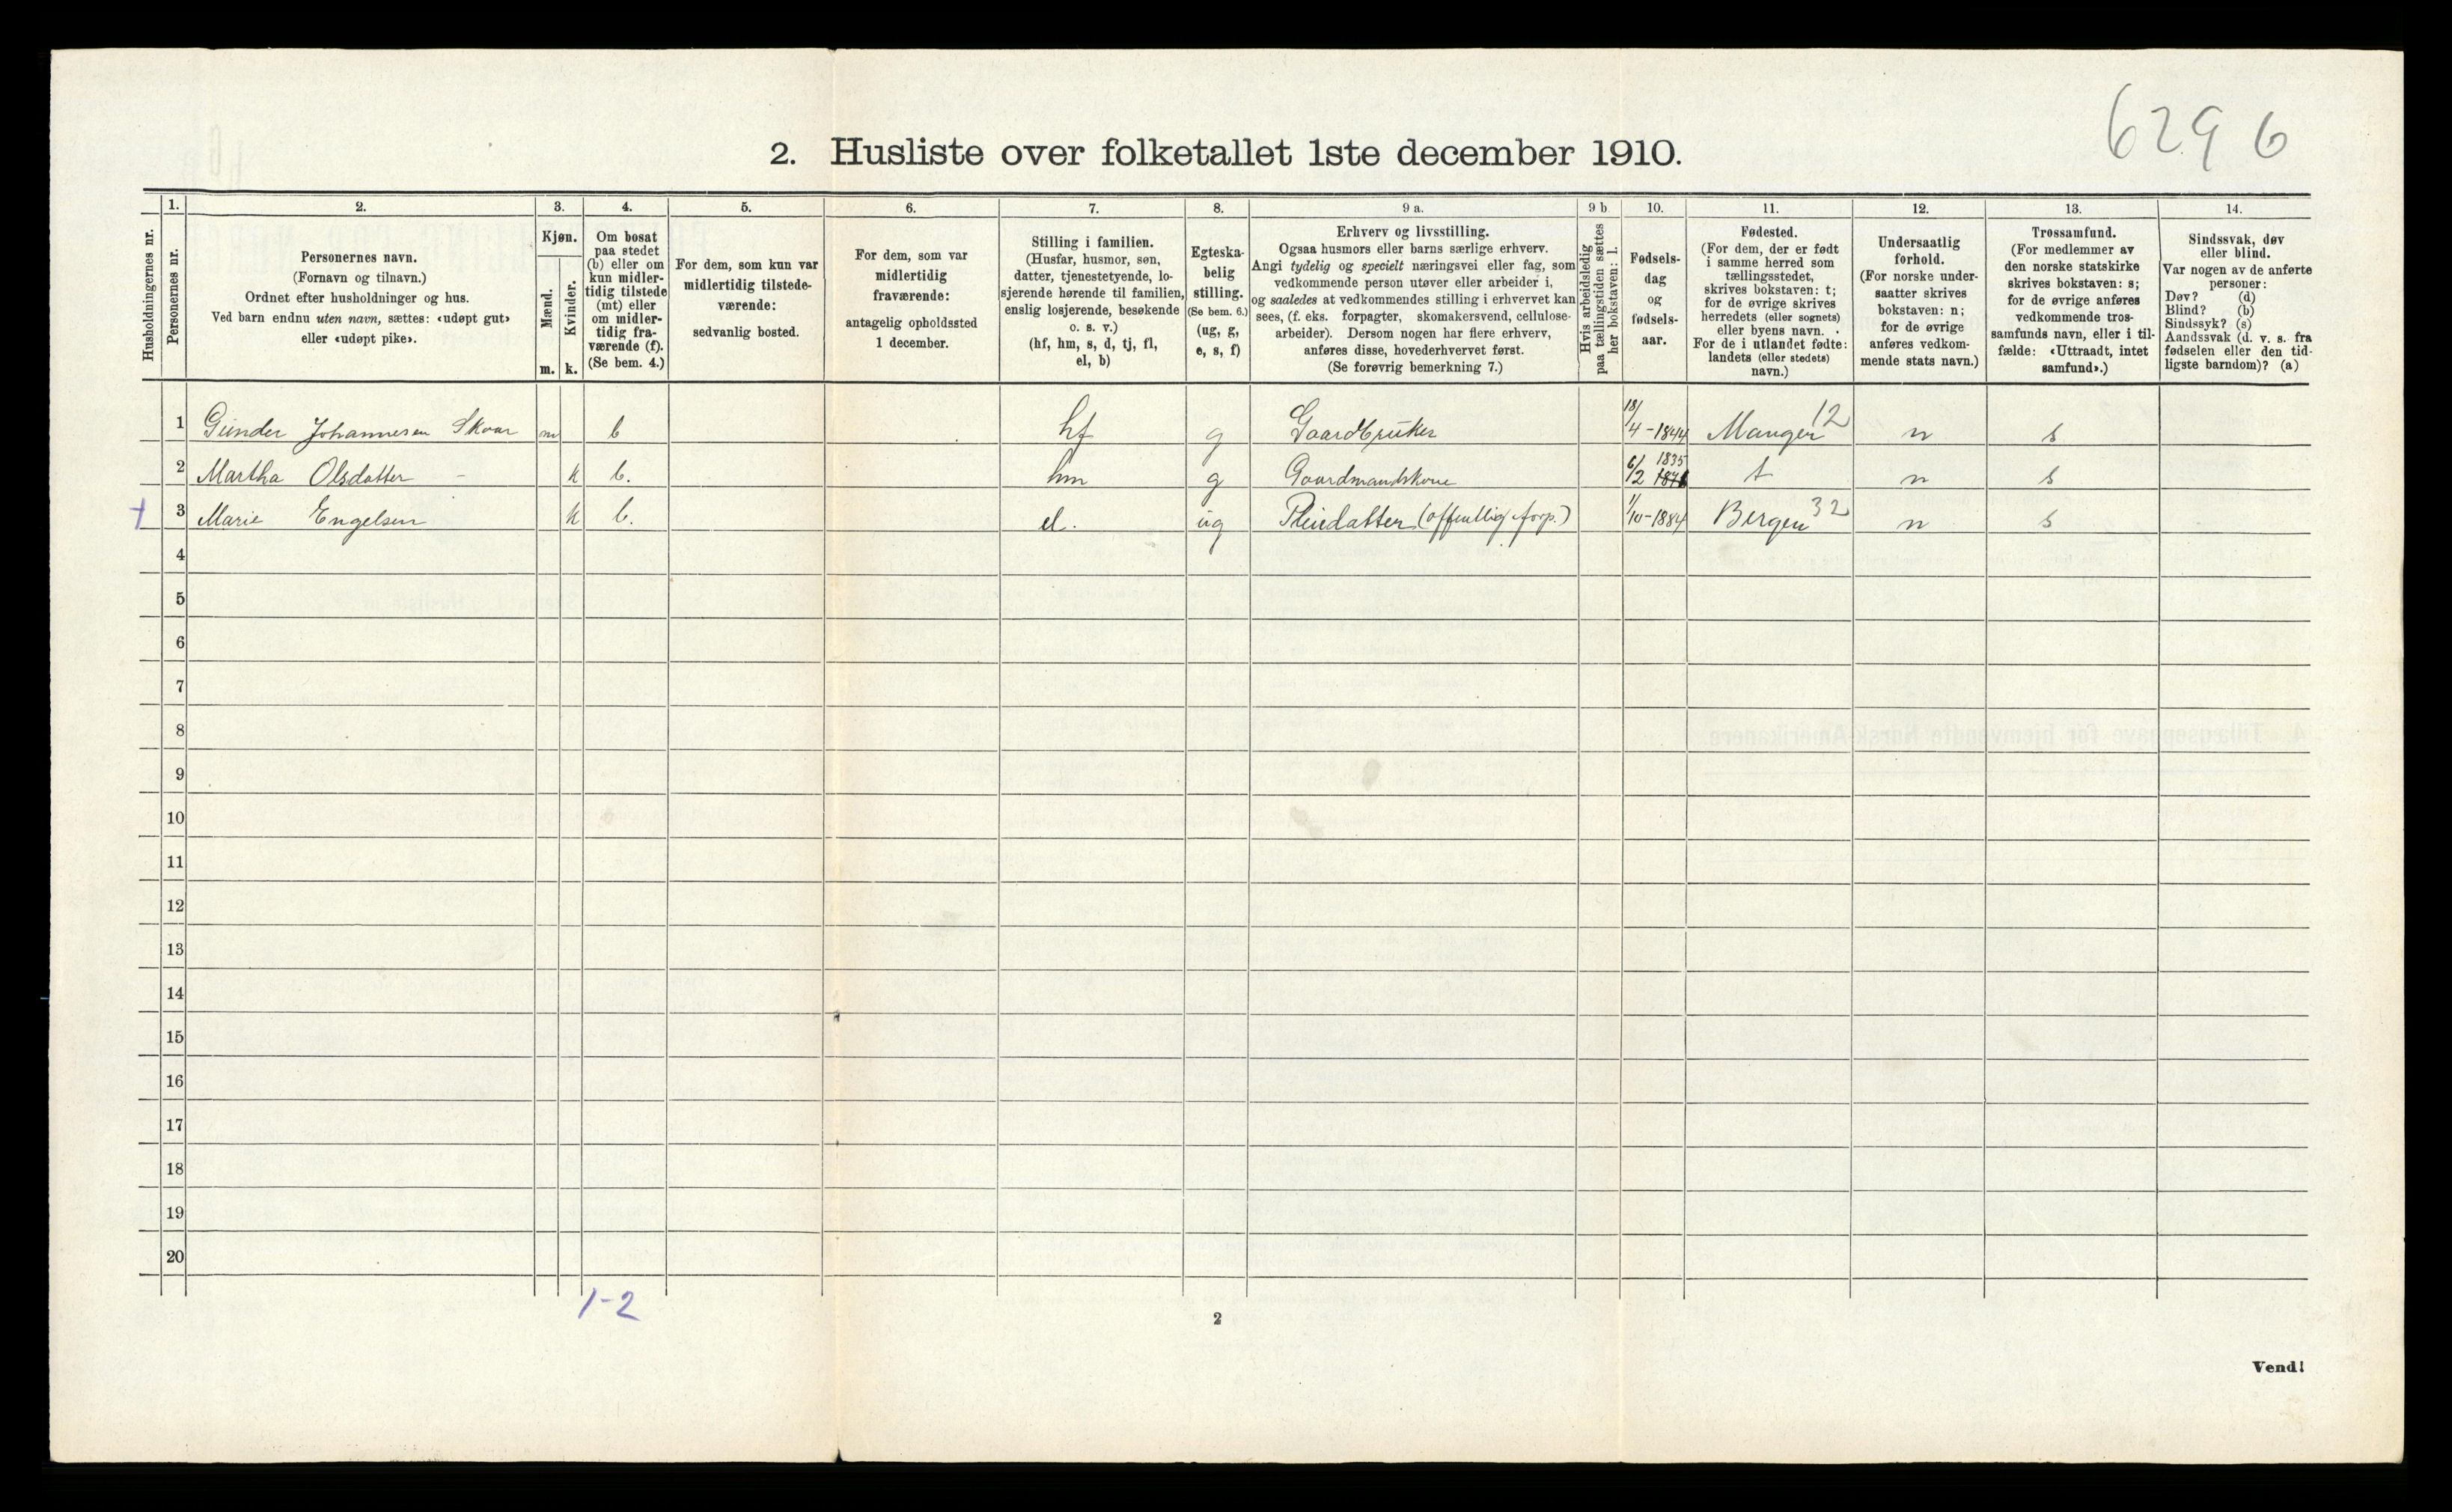 6296
2. Husliste over folketallet 1ste december 1910.
1. 2. 3. 4. 5. 6. 7. 8. 9 a. 9 b 10. 11. 12. 13. 14.
Husholdningernes nr.
Personernes nr.
Personernes navn.
(Fornavn og tilnavn.)
Ordnet efter husholdninger og hus.
Ved barn endnu uten navn, sættes: «udøpt gut»
eller «udøpt pike».
Kjøn.
Mænd.
Kvinder.
m. k.
Om bosat
paa stedet
(b) eller om
kun midler-
tidig tilstede
(mt) eller
om midler-
tidig fra-
værende (f).
(Se bem. 4.)
For dem, som kun var
midlertidig tilstede-
værende:
sedvanlig bosted.
For dem, som var
midlertidig
fraværende:
antagelig opholdssted
1 december.
Stilling i familien.
(Husfar, husmor, søn,
datter, tjenestetyende, lo-
sjerende hørende til familien,
enslig losjerende, besøkende
o. s. v.)
(hf, hm, s, d, tj, fl,
el, b)
Egteska-
belig
stilling.
(Se bem. 6.)
(ug, g,
e, s, f)
Erhverv og livsstilling.
Ogsaa husmors eller barns særlige erhverv.
Angi tydelig og specielt næringsvei eller fag, som
vedkommende person utøver eller arbeider i,
og saaledes at vedkommendes stilling i erhvervet kan
sees, (f. eks. forpagter, skomakersvend, cellulose-
arbeider). Dersom nogen har flere erhverv,
anføres disse, hovederhvervet først.
(Se forøvrig bemerkning 7.)
Hvis arbeidsledig
paa tællingstiden sættes
her bokstaven: l.
Fødsels-
dag
og
fødsels-
aar.
Fødested.
(For dem, der er født
i samme herred som
tællingsstedet,
skrives bokstaven: t;
for de øvrige skrives
herredets (eller sognets)
eller byens navn.
For de i utlandet fødte:
landets (eller stedets)
navn.)
Undersaatlig
forhold.
(For norske under-
saatter skrives
bokstaven: n;
for de øvrige
anføres vedkom-
mende stats navn.)
Trossamfund.
(For medlemmer av
den norske statskirke
skrives bokstaven: s;
for de øvrige anføres
vedkommende tros-
samfunds navn, eller i til-
fælde: «Uttraadt, intet
samfund».)
Sindssvak, døv
eller blind.
Var nogen av de anførte
personer:
Døv? (d)
Blind? (b)
Sindssyk? (s)
Aandssvak (d. v. s. fra
fødselen eller den tid-
ligste barndom)? (a)
1 Gunder Johannesen Skaar m b hf g Gaardbruker 18/4-1844 Manger 12 n s
2 Martha Olsdatter - k b. hm g Gaardmandskone 6/2 1835 n t s
3 Marie Engelsen k b. el. ug Pleiedatter (offentlig forp.) 1/10-1884 Bergen 32 n s
4
5
6
7
8
9
10
11
12
13
14
15
16
17
18
19
20
1-2
2
Vend!